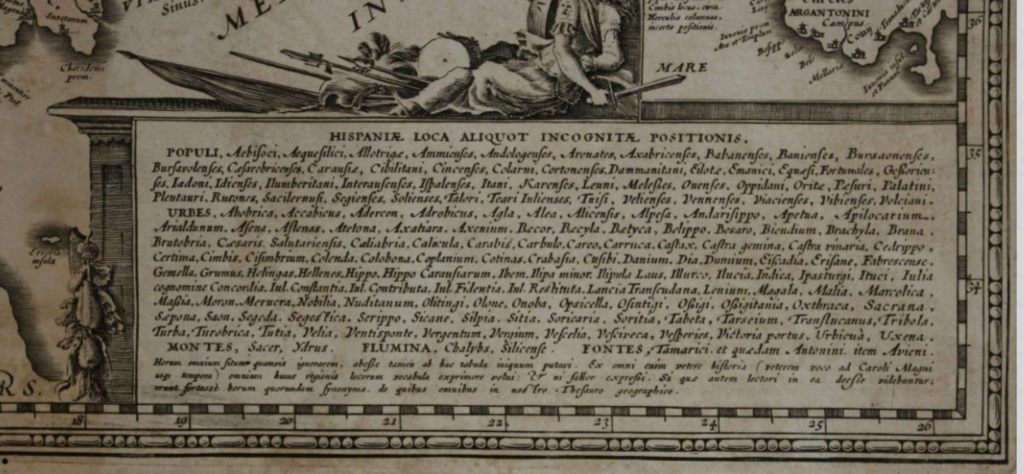 Sinus.
ME
IN
Cimbis locus, circa
Herculis columnas,
incerte positionis.
ARGANTONINI
Campus
36
Charidemi
prom.
MARE
HISPANIÆ LOCA ALIQUOT INCOGNITÆ POSITIONIS.
POPULI, Aebisoci, Aequesilici, Allotrigæ, Ammienses, Andologenses, Aronates, Axabricenses, Babanenses, Banienses, Bursaonenses,
Bursavolenses, Cæsarobricenses, Carausiæ, Cibilitani, Cincenses, Colarni, Cortonenses, Dammanitani, Eilotæ, Emanici, Equesi, Fortunales, Gessorien-
ses, Iadoni, Idienses, Ilumberitani, Interausenses, Ispalenses, Itani, Karenses, Leuni, Melesses, Onenses, Oppidani, Oritæ, Pæsuri, Palatini,
Plentauri, Rucones, Sacilernusi, Segienses, Solienses, Talori, Teari Iulienses, Tuisi, Velienses, Vennenses, Viacienses, Vibienses, Volciani.
URBES, Abobrica, Accabicus, Adercon, Adrobicus, Agla, Alea, Alicensis, Alpesa, Andarisippo, Apetua, Apilocarium,
Arialdunum, Asena, Astenas, Atetona, Axatiara, Axenium, Baccor, Becyla, Betyca, Belippo, Besaro, Biendium, Brachyla, Brana,
Brutobria, Cæsaris Salutariensis, Caliabria, Calucula, Carabis, Carbulo, Careo, Carruca, Castax, Castra gemina, Castra vinaria, Cedrippo,
Certima, Cimbis, Cisimbrum, Colenda, Colobona, Coplanium, Cotinas, Crabasia, Cusibi, Danium, Dia, Dumium, Eiscadia, Erisane, Fabrescense,
Gemella, Grumus, Helingas, Hellenes, Hippo, Hippo Carausiarum, Ibem, Ilipa minor, Ilipula Laus, Illurco, Ilucia, Indica, Ipasturgi, Ituci, Iulia
cognomine Concordia, Iul. Constantia, Iul. Contributa, Iul. Fidentia, Iul. Restituta, Lancia Transcudana, Lenium, Magala, Malia, Marcolica,
Massia, Moron, Merucra, Nobilia, Nuditanum, Olitingi, Olone, Onoba, Opsicella, Osintigi, Ossigi, Ossigitania, Oxthraca, Sacrana,
Sæpona, Saon, Segeda, Segestica, Serippo, Sicane, Silpia, Sitia, Soricaria, Soritia, Tabeta, Tarseium, Translucanus, Tribola,
Turba, Turobrica, Tutia, Velia, Ventisponte, Vergentum, Vergium, Vescelia, Vesciveca, Vesperies, Victoria portus, Urbicua, Uxena.
MONTES, Sacer, Ydrus. FLUMINA, Chalybs, Silicense. FONTES, Tamarici, et quædam Antonini item Avieni.
Horum omnium situm quamvis ignorarem, abesse tamen ab hac tabula iniquum putavi. Ex omni enim vetere historia (veterem voco ad Caroli Magni
usque tempora) omnium huius regionis locorum vocabula exprimere volui: & ni fallor expressi. Si quæ autem lectori in ea deesse videbuntur,
erunt fortassè horum quorundam synonyma, de quibus omnibus in nostro Thesauro geographico.
35
34
RS.
18
19
20
21
22
23
24
25
26